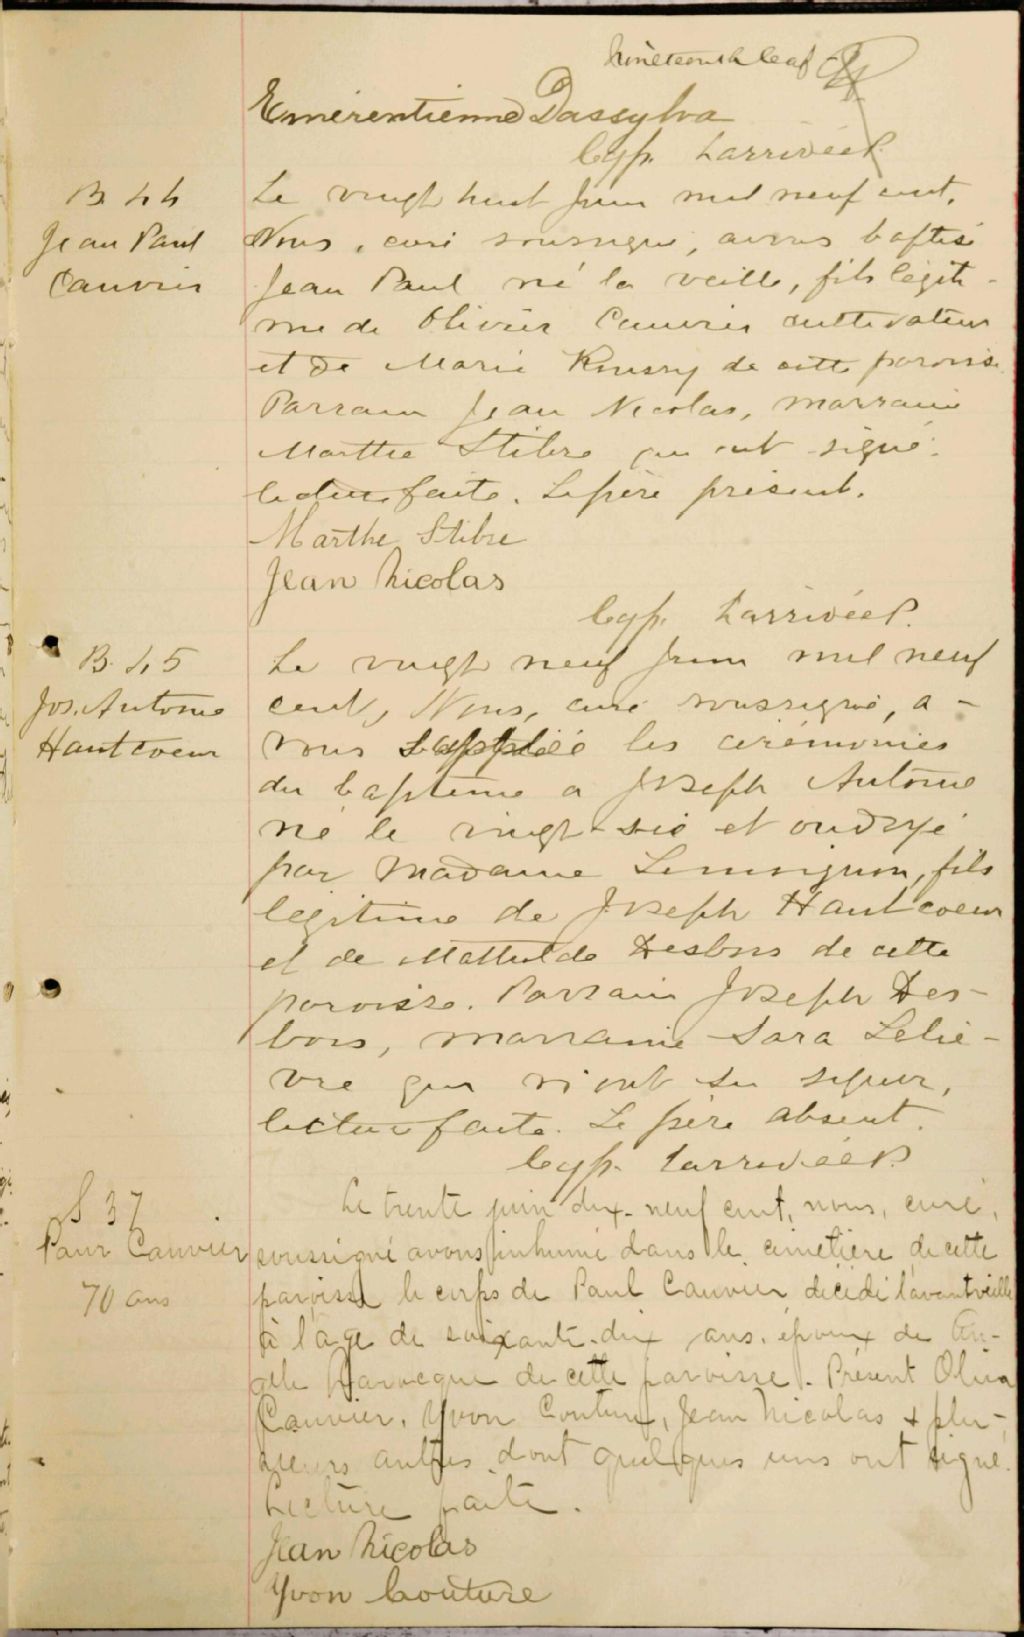 Nineteenth leaf
Emerentienne Dassylva
Cyp. Larrivée P.
B. 44
Jean Paul
Cauvier
Le vingt huit Juin mil neuf cent,
Nous, curé soussigné, avons baptisé
Jean Paul né la veille, fils légiti-
me de Olivier Cauvier cultivateur
et de Marie Roussy de cette paroisse.
Parrain Jean Nicolas, marraine
Marthe Stibre qui ont signé.
lecture faite. Le père présent.
Marthe Stibre
Jean Nicolas
Cyp. Larrivée P.
B. 45
Jos. Antoine
Hautcoeur
Le vingt neuf Juin mil neuf
cent, Nous, curé soussigné, a-
vons suppléé les cérémonies
du baptême a Joseph Antoine
né le vingt-six et ondoyé
par Madame Lemoignon, fils
légitime de Joseph Hautcoeur
et de Mathilde Desbois de cette
paroisse. Parrain Joseph Des-
bois, marraine Sara Leliè-
vre qui n'ont su signer,
lecture faite. Le père absent.
Cyp. Larrivée P.
S 37
Paul Cauvier
70 ans
Le trente juin dix-neuf cent, nous, curé,
soussigné avons inhumé dans le cimetière de cette
paroisse le corps de Paul Cauvier décédé l'avant veille
à l'âge de soixante-dix ans. époux de An-
gèle de cette paroisse. Présent
Cauvier, Yvon Couture, Jean Nicolas + plu-
sieurs autres dont quelques uns ont signé.
Lecture faite.
Jean Nicolas
Yvon Couture